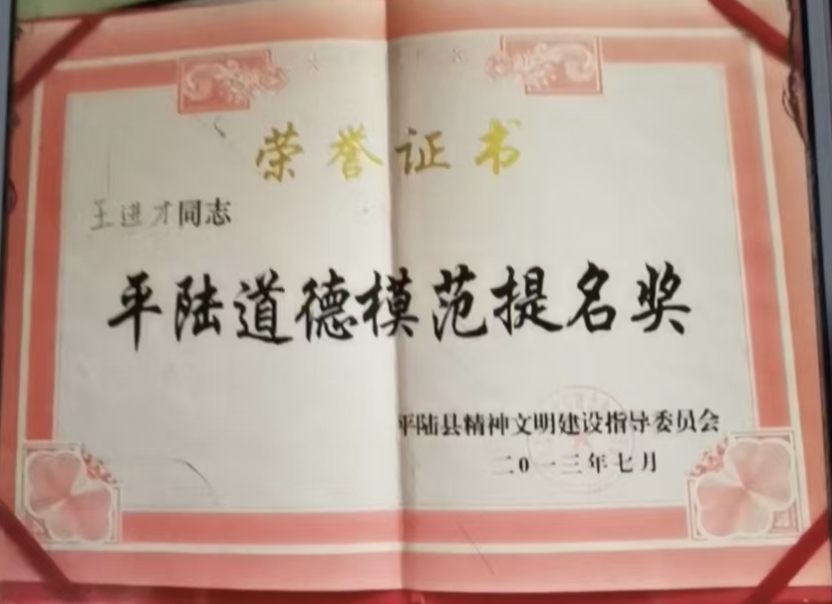 荣誉证书
王进才同志
平陆道德模范提名奖
平陆县精神文明建设指导委员会
二0一三年七月